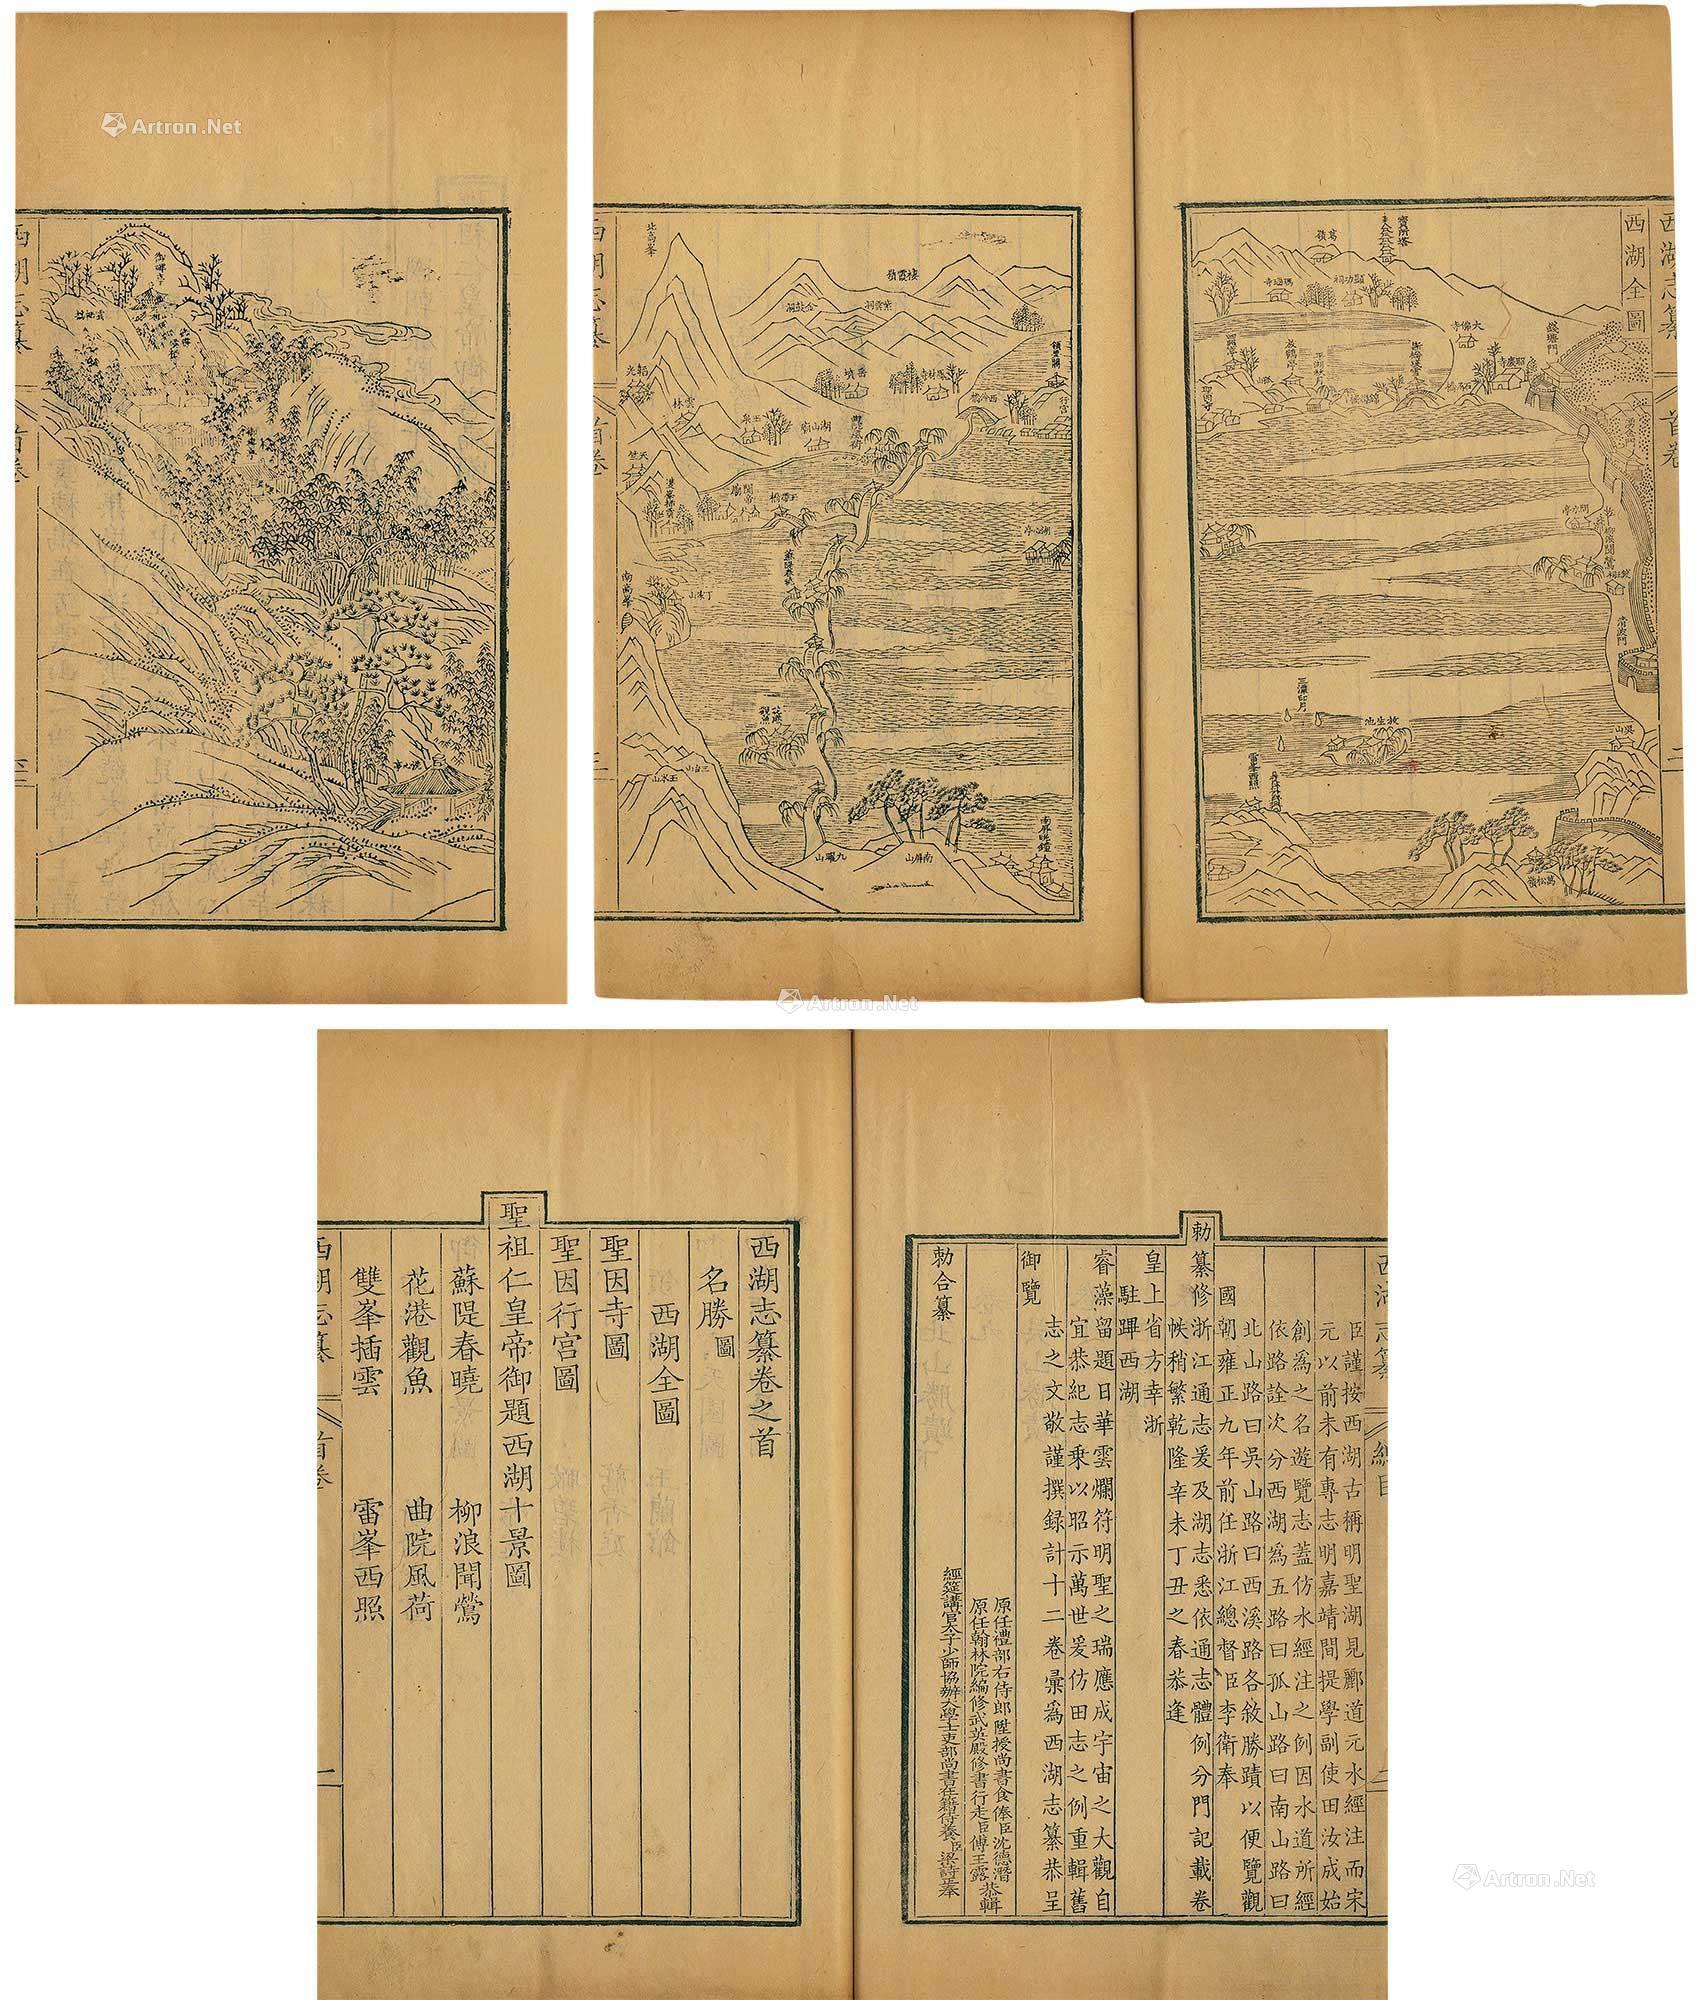 Artron.Net
西湖志纂
首卷
三
西湖全圖
西湖志纂
首卷
二
寶所塔
葛嶺
瑪瑙寺
顯功祠
大佛寺
錢塘門
昭慶寺
放鶴亭
孤山
斷橋殘雪
錦帶橋
聖因寺
湧金門
問水亭
柳浪聞鶯
清波門
三潭印月
放生池
吳山
雷峯西照
萬松嶺
北高峯
棲霞嶺
紫雲洞
金鼓洞
韜光
岳墳
鳳林寺
西泠橋
行宮
雲林
玉泉
湖山廟
麯院風荷
天竺
雙峯插雲
關帝廟
玉帶橋
湖心亭
蘇隄春曉
南高峯
丁家山
花港觀魚
三台山
玉岑山
九曜山
南屏山
南屏晚鐘
西湖志纂
首卷
Artron.Net
西湖志纂
總目
二
臣謹按西湖古稱明聖湖見酈道元水經注而宋
元以前未有專志明嘉靖間提學副使田汝成始
創爲之名遊覽志蓋仿水經注之例因水道所經
依路詮次分西湖爲五路曰孤山路曰南山路曰
北山路曰吳山路曰西溪路各敘勝蹟以便覽觀
國朝雍正九年前任浙江總督臣李衛奉
勅纂修浙江通志爰及湖志悉依通志體例分門記載卷
帙稍繁乾隆辛未丁丑之春恭逢
皇上省方幸浙
駐蹕西湖
睿藻留題日華雲爛符明聖之瑞應成宇宙之大觀自
宜恭紀志乘以昭示萬世爰仿田志之例重輯舊
志之文敬謹撰録計十二卷彙爲西湖志纂恭呈
御覽
原任禮部右侍郎陞授尚書食俸臣沈德潛
原任翰林院編修武英殿修書行走臣傅王露
恭輯
經筵講官太子少師協辦大學士吏部尚書在籍侍養臣梁詩正奉
勅合纂
西湖志纂卷之首
名勝圖
西湖全圖
聖因寺圖
聖因行宮圖
聖祖仁皇帝御題西湖十景圖
蘇隄春曉 柳浪聞鶯
花港觀魚 曲院風荷
雙峯插雲 雷峯西照
西湖志纂
首卷
二
Artron.Net